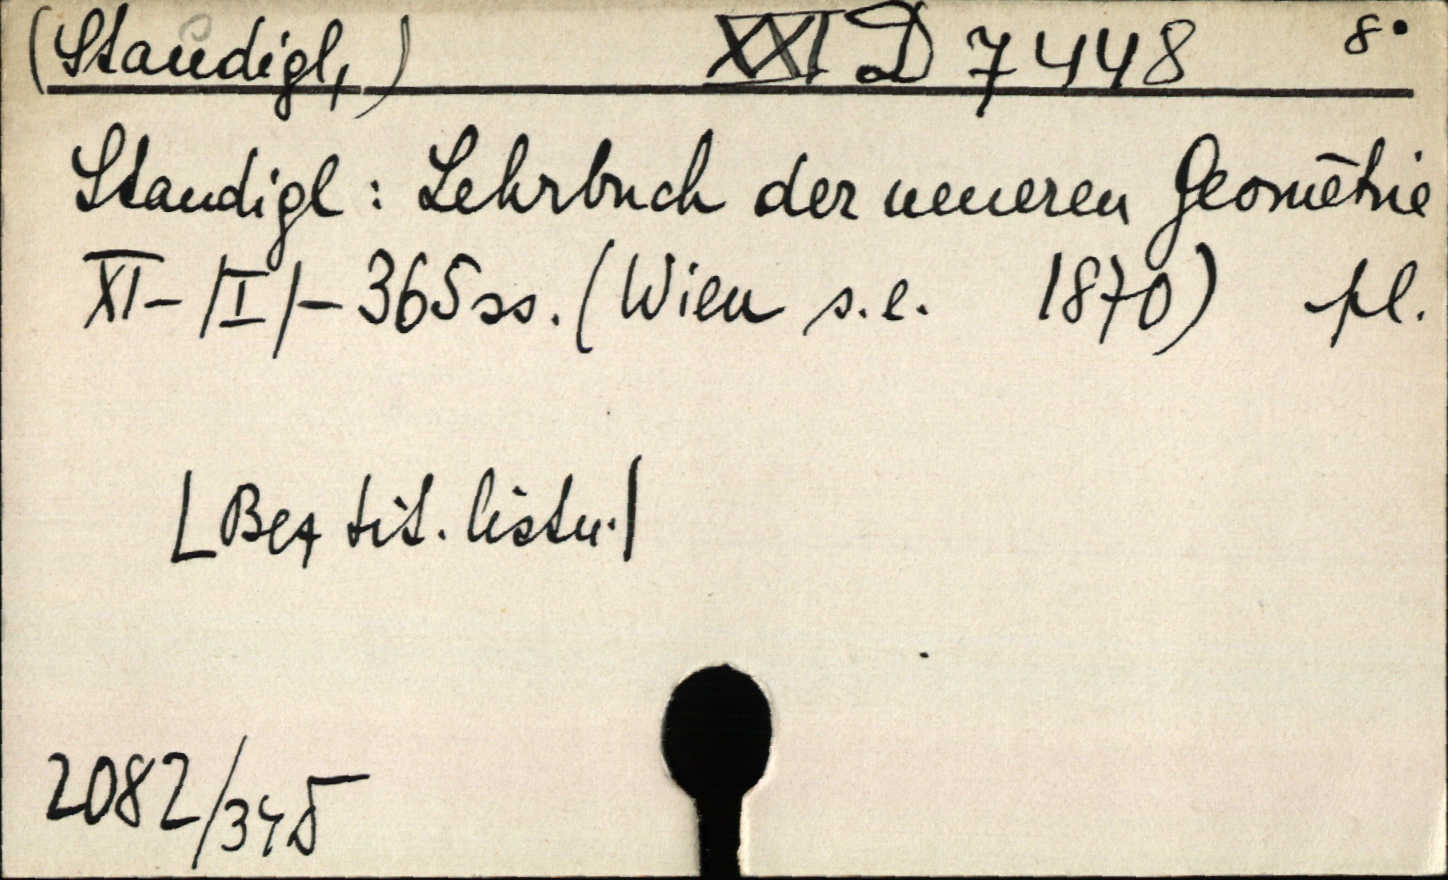 (Staudigl,) XXI D 7448 8°
Staudigl: Lehrbuch der neueren Geometrie
XI-/I/-365 ss. (Wien s.e. 1870) pl.
[Bez tit. listu.]
2082/345